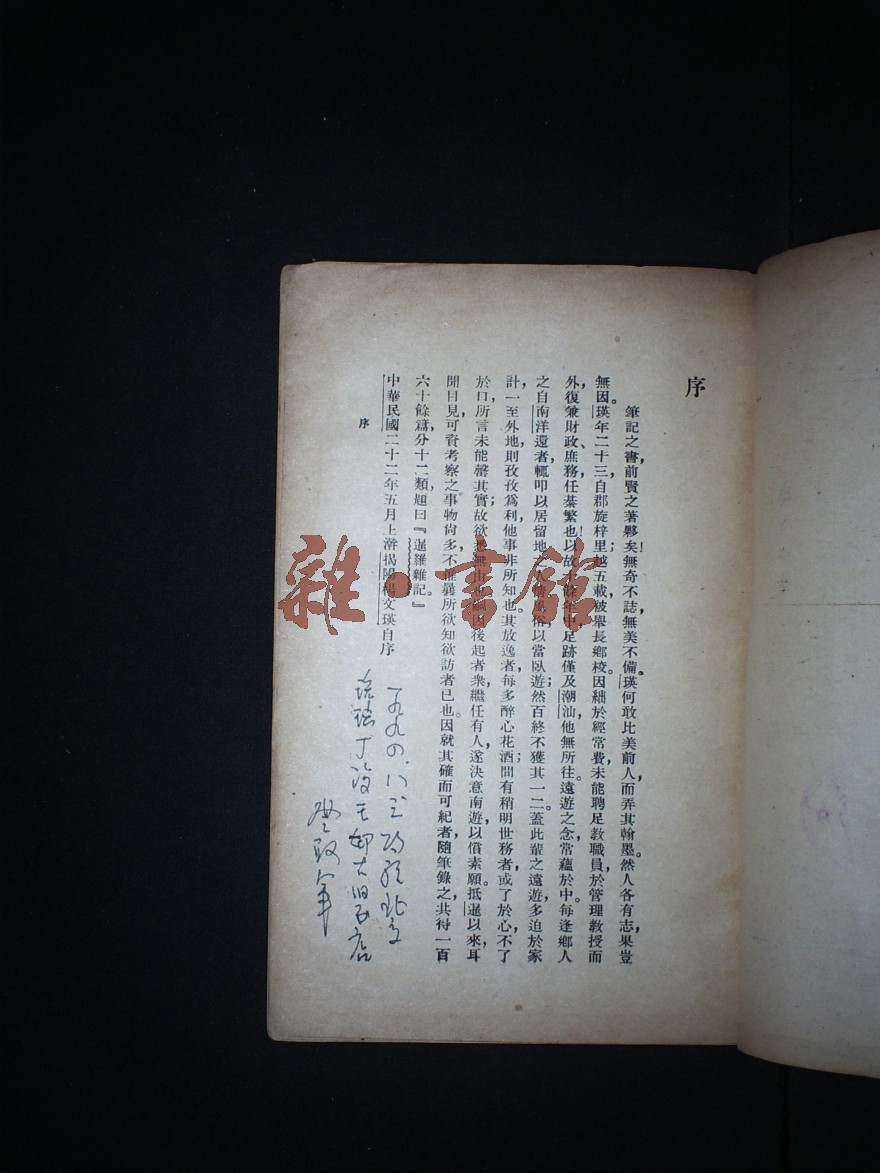 序
筆記之書，前賢之著夥矣！無奇不誌，無美不備。瑛何敢比美前人，而弄其翰墨。然人各有志，果豈
無因。瑛年二十三，自郡旋梓里，越五載，被舉長鄉校。因絀於經常費，未能聘足敎職員，於管理敎授而
外，復兼財政、庶務，任綦繁也！以故十餘年中，足跡僅及潮汕，他無所往。遠遊之念，常蘊於中。每逢鄉人
之自南洋還者，輒叩以居留地之人情風俗，以當臥遊。然百終不獲其一二。蓋此輩之遠遊，多迫於家
計，一至外地，則孜孜爲利，他事非所知也。其放逸者，每多醉心花酒；間有稍明世務者，或了於心，不了
於口，所言未能罄其實；故欲悉無由也。嗣因後起者衆，繼任有人，遂決意南遊，以償素願。抵暹以來，耳
聞目見，可資考察之事物尙多，不惟曩所欲知欲訪者已也。因就其確而可紀者，隨筆錄之，共得一百
六十餘篇，分十二類，題曰『暹羅雜記。』
中華民國二十二年五月上澣揭陽楊文瑛自序
序
一九九四.八.
雜·書館